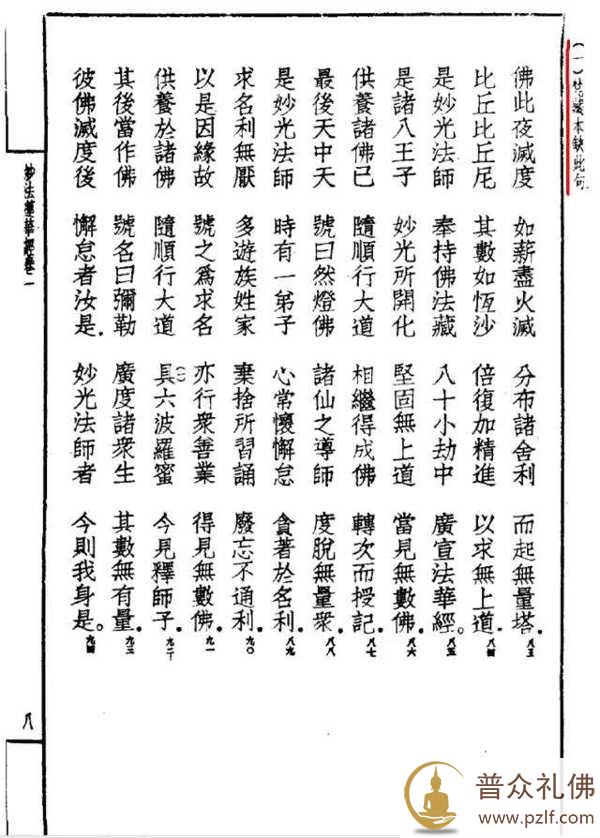 (一)梵藏本缺此句
佛此夜滅度　如薪盡火滅　分布諸舍利　而起無量塔.八三
比丘比丘尼　其數如恆沙　倍復加精進　以求無上道.八四
是妙光法師　奉持佛法藏　八十小劫中　廣宣法華經。八五
是諸八王子　妙光所開化　堅固無上道　當見無數佛.八六
供養諸佛已　隨順行大道　相繼得成佛　轉次而授記.八七
最後天中天　號曰然燈佛　諸仙之導師　度脫無量衆.八八
是妙光法師　時有一弟子　心常懷懈怠　貪著於名利.八九
求名利無厭　多遊族姓家　棄捨所習誦　廢忘不通利.九〇
以是因緣故　號之爲求名　亦行衆善業　得見無數佛.九一
供養於諸佛　隨順行大道　(一)具六波羅蜜　今見釋師子.九二
其後當作佛　號名曰彌勒　廣度諸衆生　其數無有量.九三
彼佛滅度後　懈怠者汝是.　妙光法師者　今則我身是。九四
妙法蓮華經卷一
八
普众礼佛
www.pzlf.com